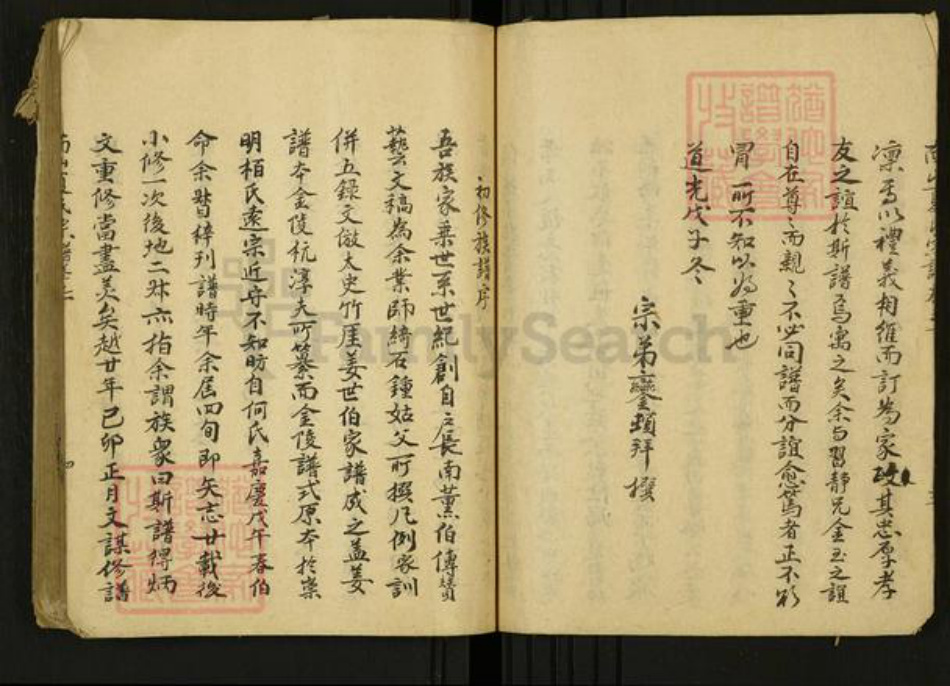 凛焉以禮義相維而訂為家政其忠厚孝
友之誼於斯譜焉寓之矣余与習静兄金玉之誼
自在尊尊而親親不必同譜而分誼愈篤者正不
胃所不知以為重也
道光戊子冬
宗弟鎣頊拜撰
初修族譜序
吾族家乗世系世紀創自戸長南薫伯傳贊
藝文稿為余業師綺石鍾姑父所撰凡例家訓
併五録文倣太史竹厓姜世伯家譜成之盖姜
譜本金陵杭淳夫所纂而金陵譜式原本於
明柏氏遠宗近守不知昉自何氏嘉慶戊午春伯
命余暫梓列譜時年余居四旬即矢志廿載後
小修一次後地二 亦指余謂族衆曰斯譜得炳
文重修當盡美矣越廿年己卯正月又謀修譜
FamilySearch